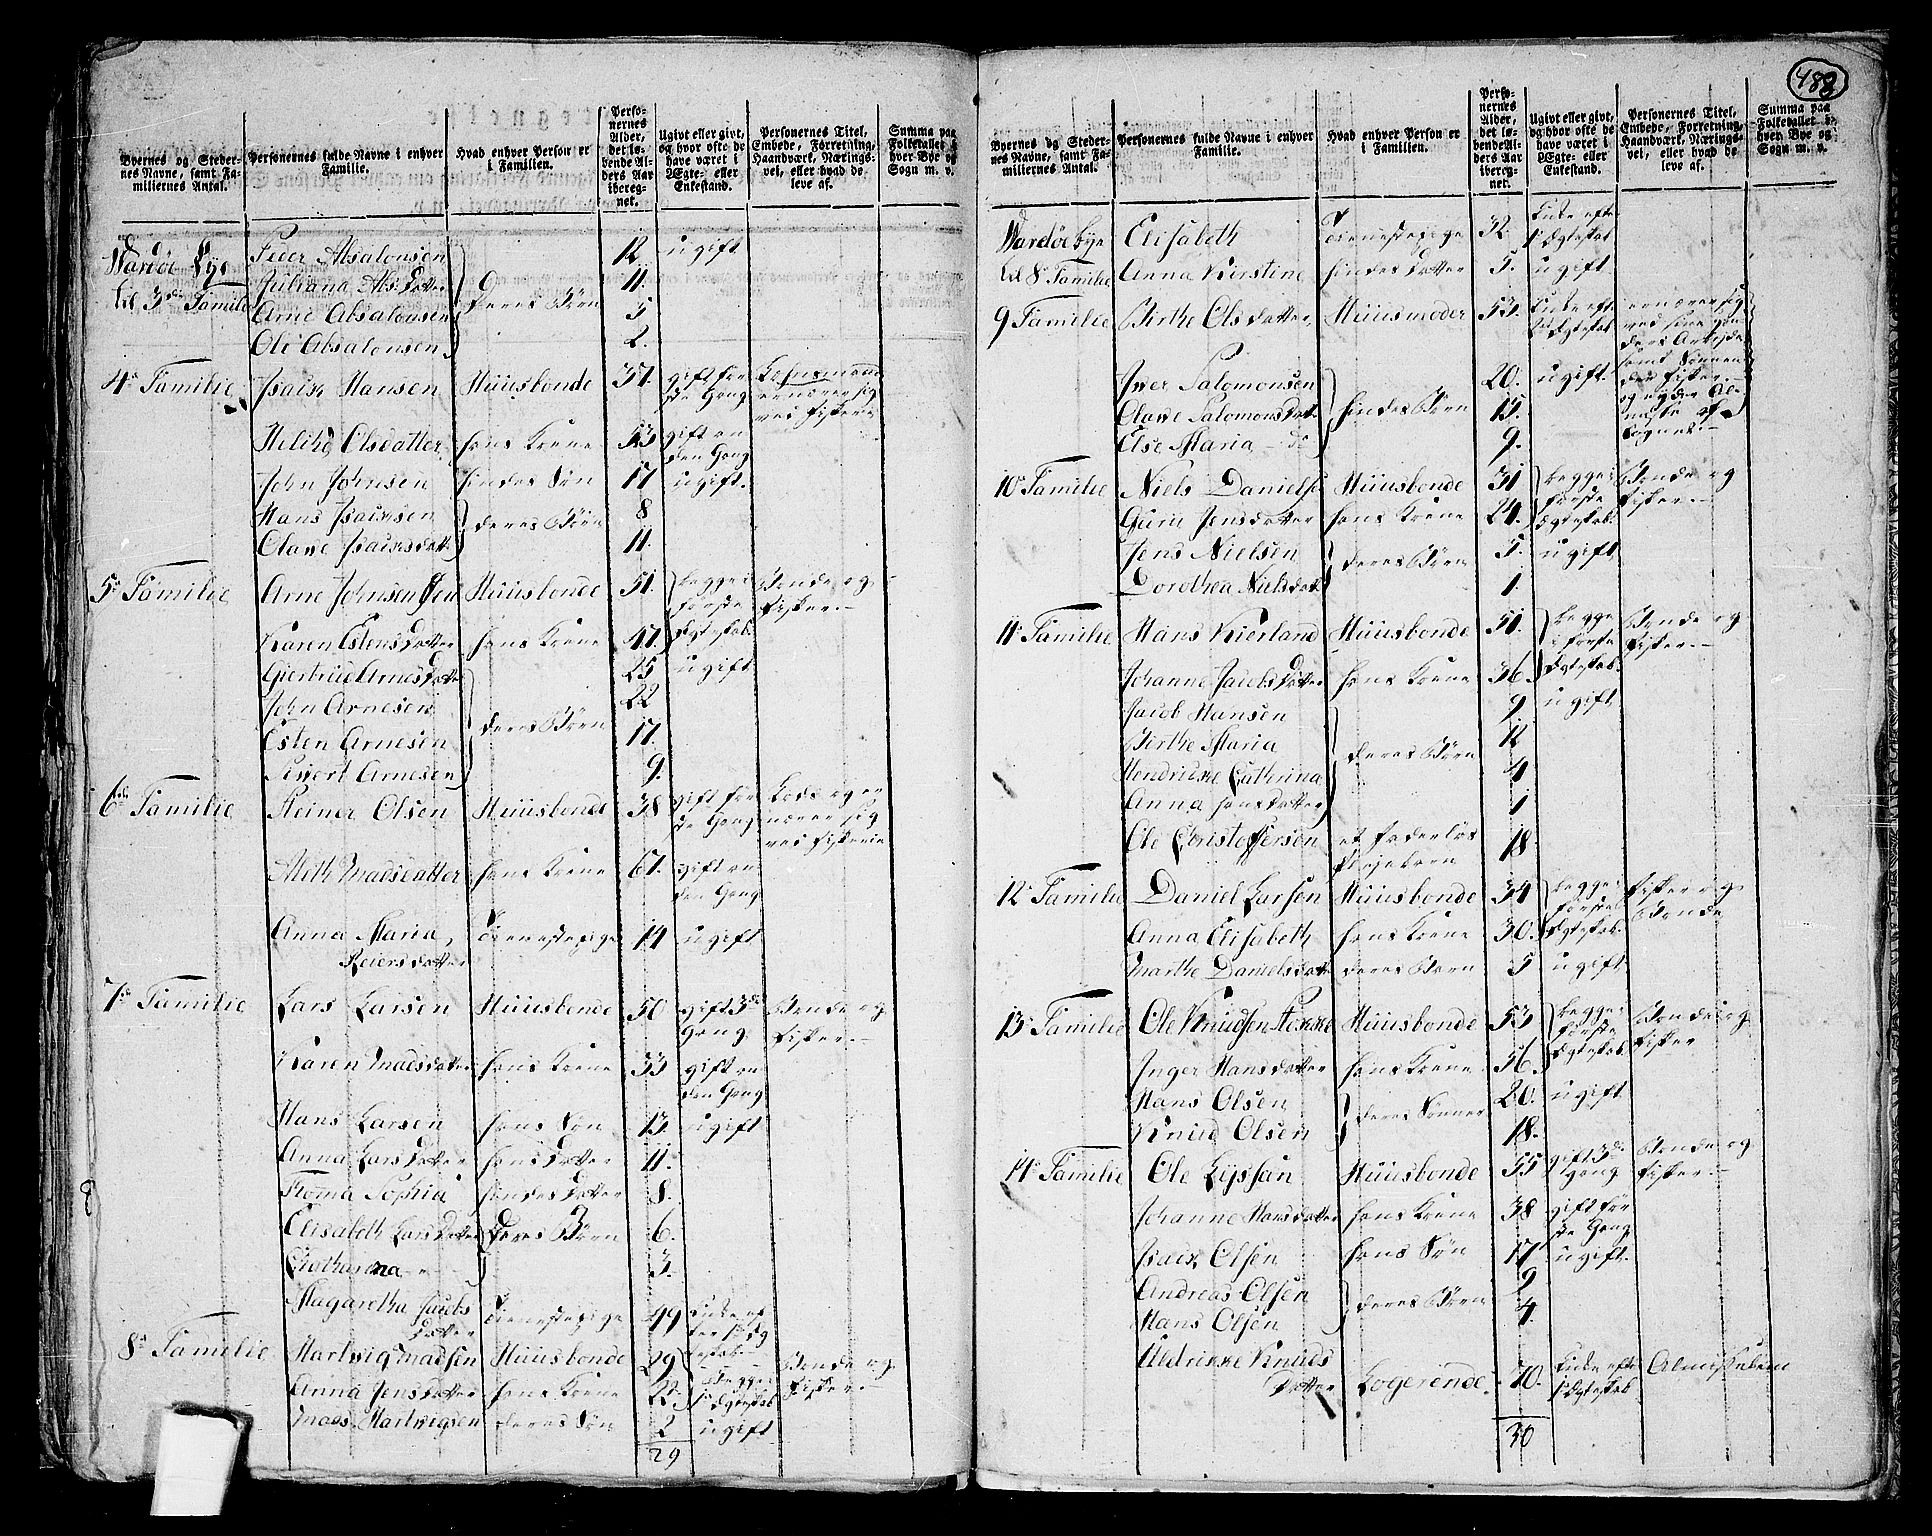 488
Byernes og Steder-
nes Navne, samt Fa-
miliernes Antal.
Personernes fulde Navne i enhver
Familie.
Hvad enhver Person er
i Familien.
Perso-
nernes
Alder,
det lø-
bende Al-
ders Aar
ibereg-
net.
Ugivt eller givt,
og hvor ofte de
have været i
Ægte- eller
Enkestand.
Personernes Titel,
Embede, Forretning,
Haandværk, Nærings-
vei, eller hvad de
leve af.
Summa paa
Folketallet i
hver Bye og
Sogn m. v.
Wardøe Bye Peder Absalonsen 12 ugift
til 3die Familie Juliana Abs:Datter deres Børn 11.
Arne Absalonsen 5
Ole Absalonsen 2.
4de Familie Isach Hansen Huusbonde 37. gift før-
ste Gang
ernærer sig
ved Fiskerie
Olsdatter hans Kone 53 gift an-
den Gang
John Johnsen hindes Søn 17 ugift.
Hans Isachsen deres Børn 8
Olave Isachsdatt: 11.
5te Familie Arne Johnsen Huusbonde 51. begge i
første
Ægteskab
Bonde og
Fisker.
Karen Estensdatter hans Kone 47.
Giertrud Arnesdatter 25 ugift
John Arnesen 22
Esten Arnesen deres Børn 17.
Siwert Arnesen 9.
6te Familie Reiner Olsen Huusbonde 38 gift før-
ste Gang
Lods og er-
nærer sig
ved Fiskerie
Madsdatter hans Kone 67. gift an-
den Gang
Anna Maria
Reiersdatter
Tienestepige 14 ugift
7de Familie Lars Larsen Huusbonde 50 gift 3die
Gang
Bonde og
Fisker.
Karen Madsdatter hans Kone 33 gift an-
den Gang
Hans Larsen hans Søn 13. ugift
Anna Larsdatter hans Datter 11.
Sophia hindes Datter 8.
Elisabeth Larsdatter deres Børn 6.
3.
Magaretha Jacobs
Datter
Tienestepige 49 Enke ef-
ter 1ste Æg-
teskab
8de Familie Hartwig Madsen Huusbonde 29 begge i
1ste Ægteskab
Bonde og
Fisker.
Anna Jensdatter hans Kone 22.
Mads Hartwigsen deres Søn 2 ugift
29
Byernes og Steder-
nes Navne, samt Fa-
miliernes Antal.
Personernes fulde Navne i enhver
Familie.
Hvad enhver Person er
i Familien.
Perso-
nernes
Alder,
det lø-
bende Al-
ders Aar
ibereg-
net.
Ugivt eller givt,
og hvor ofte de
have været i
Ægte- eller
Enkestand.
Personernes Titel,
Embede, Forretning,
Haandværk, Nærings-
vei, eller hvad de
leve af.
Summa paa
Folketallet i
hver Bye og
Sogn m. v.
Wardøe Bye Elisabeth Tienestepige 32. Enke efter
1ste Ægteskab
til 8de Familie Anna Kirstine hindes Datter 5. ugift
9 Familie Birthe Olsdatter Huusmoder 53. Enke efter
Ægteskab
ernærer sig
ved sine
samt Sønnen
der Fisker
Sognet.
Iver Salomonsen 20. ugift.
Olave Salomonsdat: hindes Børn 15.
Else Maria do 9.
10de Familie Niels Danielsen Huusbonde 31 begge i
første
Ægteskab.
Bonde og
Fisker.
Guru Jensdatter hans Kone 24.
Jens Nielsen deres Børn 5. ugift
Dorothea Nielsdat: 1.
11te Familie Hans Kierland Huusbonde 51. begge
i første
Ægteskab.
Bonde og
Fisker.
Johanne Jacobsdatter hans Kone 36.
Jacob Hansen 9 ugift
Birthe Maria deres Børn 12
Hendrikke Cathrina 4
Anna Hansdatter 1
Ole Christoffersen et faderløs
Pleiebarn
18.
12te Familie Daniel Larsen Huusbonde 34 begge i
første
Ægteskab.
Fisker og
Bonde
Anna Elisabeth hans Kone 30.
Marthe Danielsdatt: deres Barn 5 ugift
13de Familie Ole Knudsen Huusbonde 53 begge i
første
Ægteskab
Bonde og
Fisker
Inger Hansdatter hans Kone 56.
Hans Olsen deres Sønner 20. ugift
Knud Olsen 18.
14de Familie Ole Huusbonde 55 gift 3die
Gang
Bonde og
Fisker.
Johanne Hansdatter hans Kone 38 gift før-
ste Gang
Isach Olsen hans Søn 17 ugift
Andreas Olsen deres Børn 9
Hans Olsen 4.
Uldrikke Knuds
Datter
Logerende. 70. Enke efter
1ste Ægteskab
Almislem
30